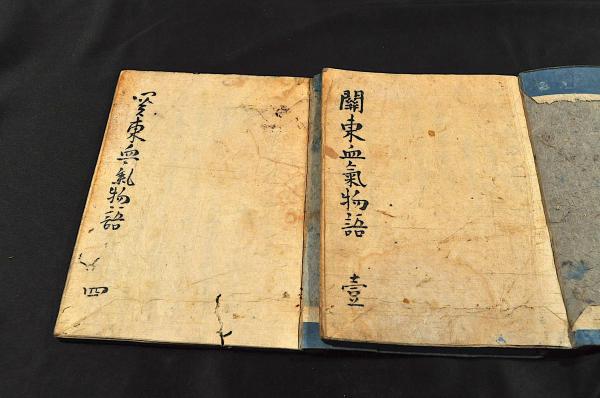 關東血氣物語
壹
関東血氣物語
四